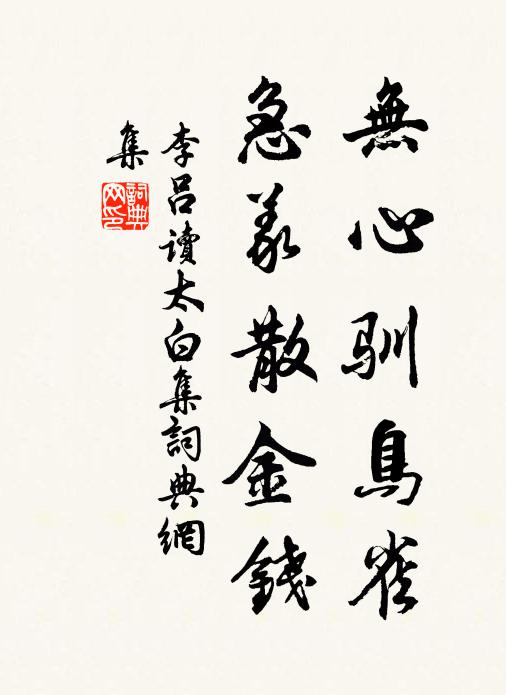 無心馴鳥雀
急義散金錢
李呂讀太白集詞典網
集
詞典网印